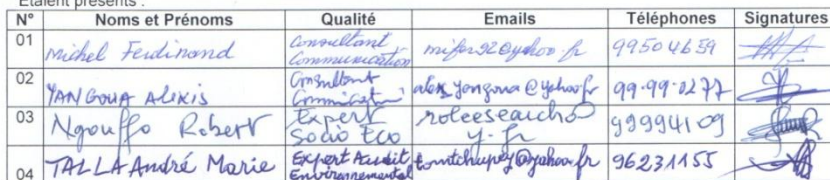 Etaient présents :
N° Noms et Prénoms Qualité Emails Téléphones Signatures
01 Michel Ferdinand Consultant Communication mifer92@yahoo.fr 99504659
02 YANGOUA ALEXIS Consultant Communicat° alex_yangoua@yahoo.fr 99-99-0277
03 Ngouffo Robert Expert Socio Eco y.fr 99994109
04 TALLA André Marie Expert Audit Environnemental tomtchupey@yahoo.fr 96231155